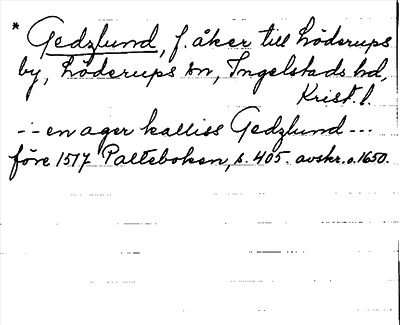 * Gedzlund, f. åker till Löderups
by, Löderups sn, Ingelstads hd,
Krist. l.
-·- en ager kalliss Gedzlund ---
före 1517 Palteboken, s. 405. avskr. o. 1650.